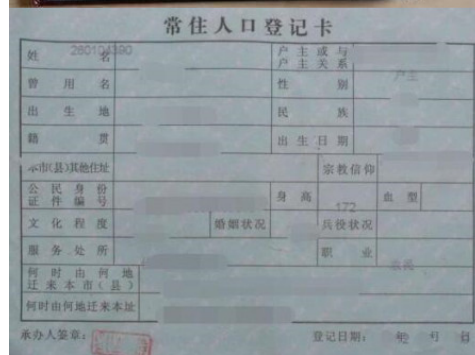 常住人口登记卡
姓名 260104390 户主或与户主关系 户主
曾用名 性别
出生地 民族
籍贯 出生日期
本市(县)其他住址 宗教信仰
公民身份证件编号 身高 172 血型
文化程度 婚姻状况 兵役状况
服务处所 职业 农民
何时由何地迁来本市(县)
何时由何地迁来本址
承办人签章: 登记日期: 年 月 日